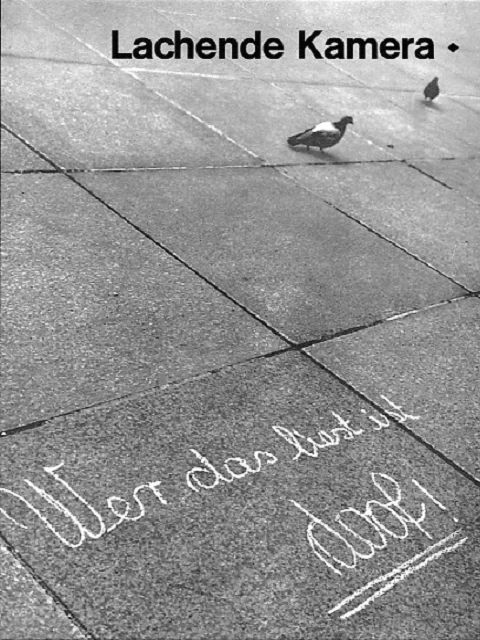 Lachende Kamera
Wer das liest ist
doof!